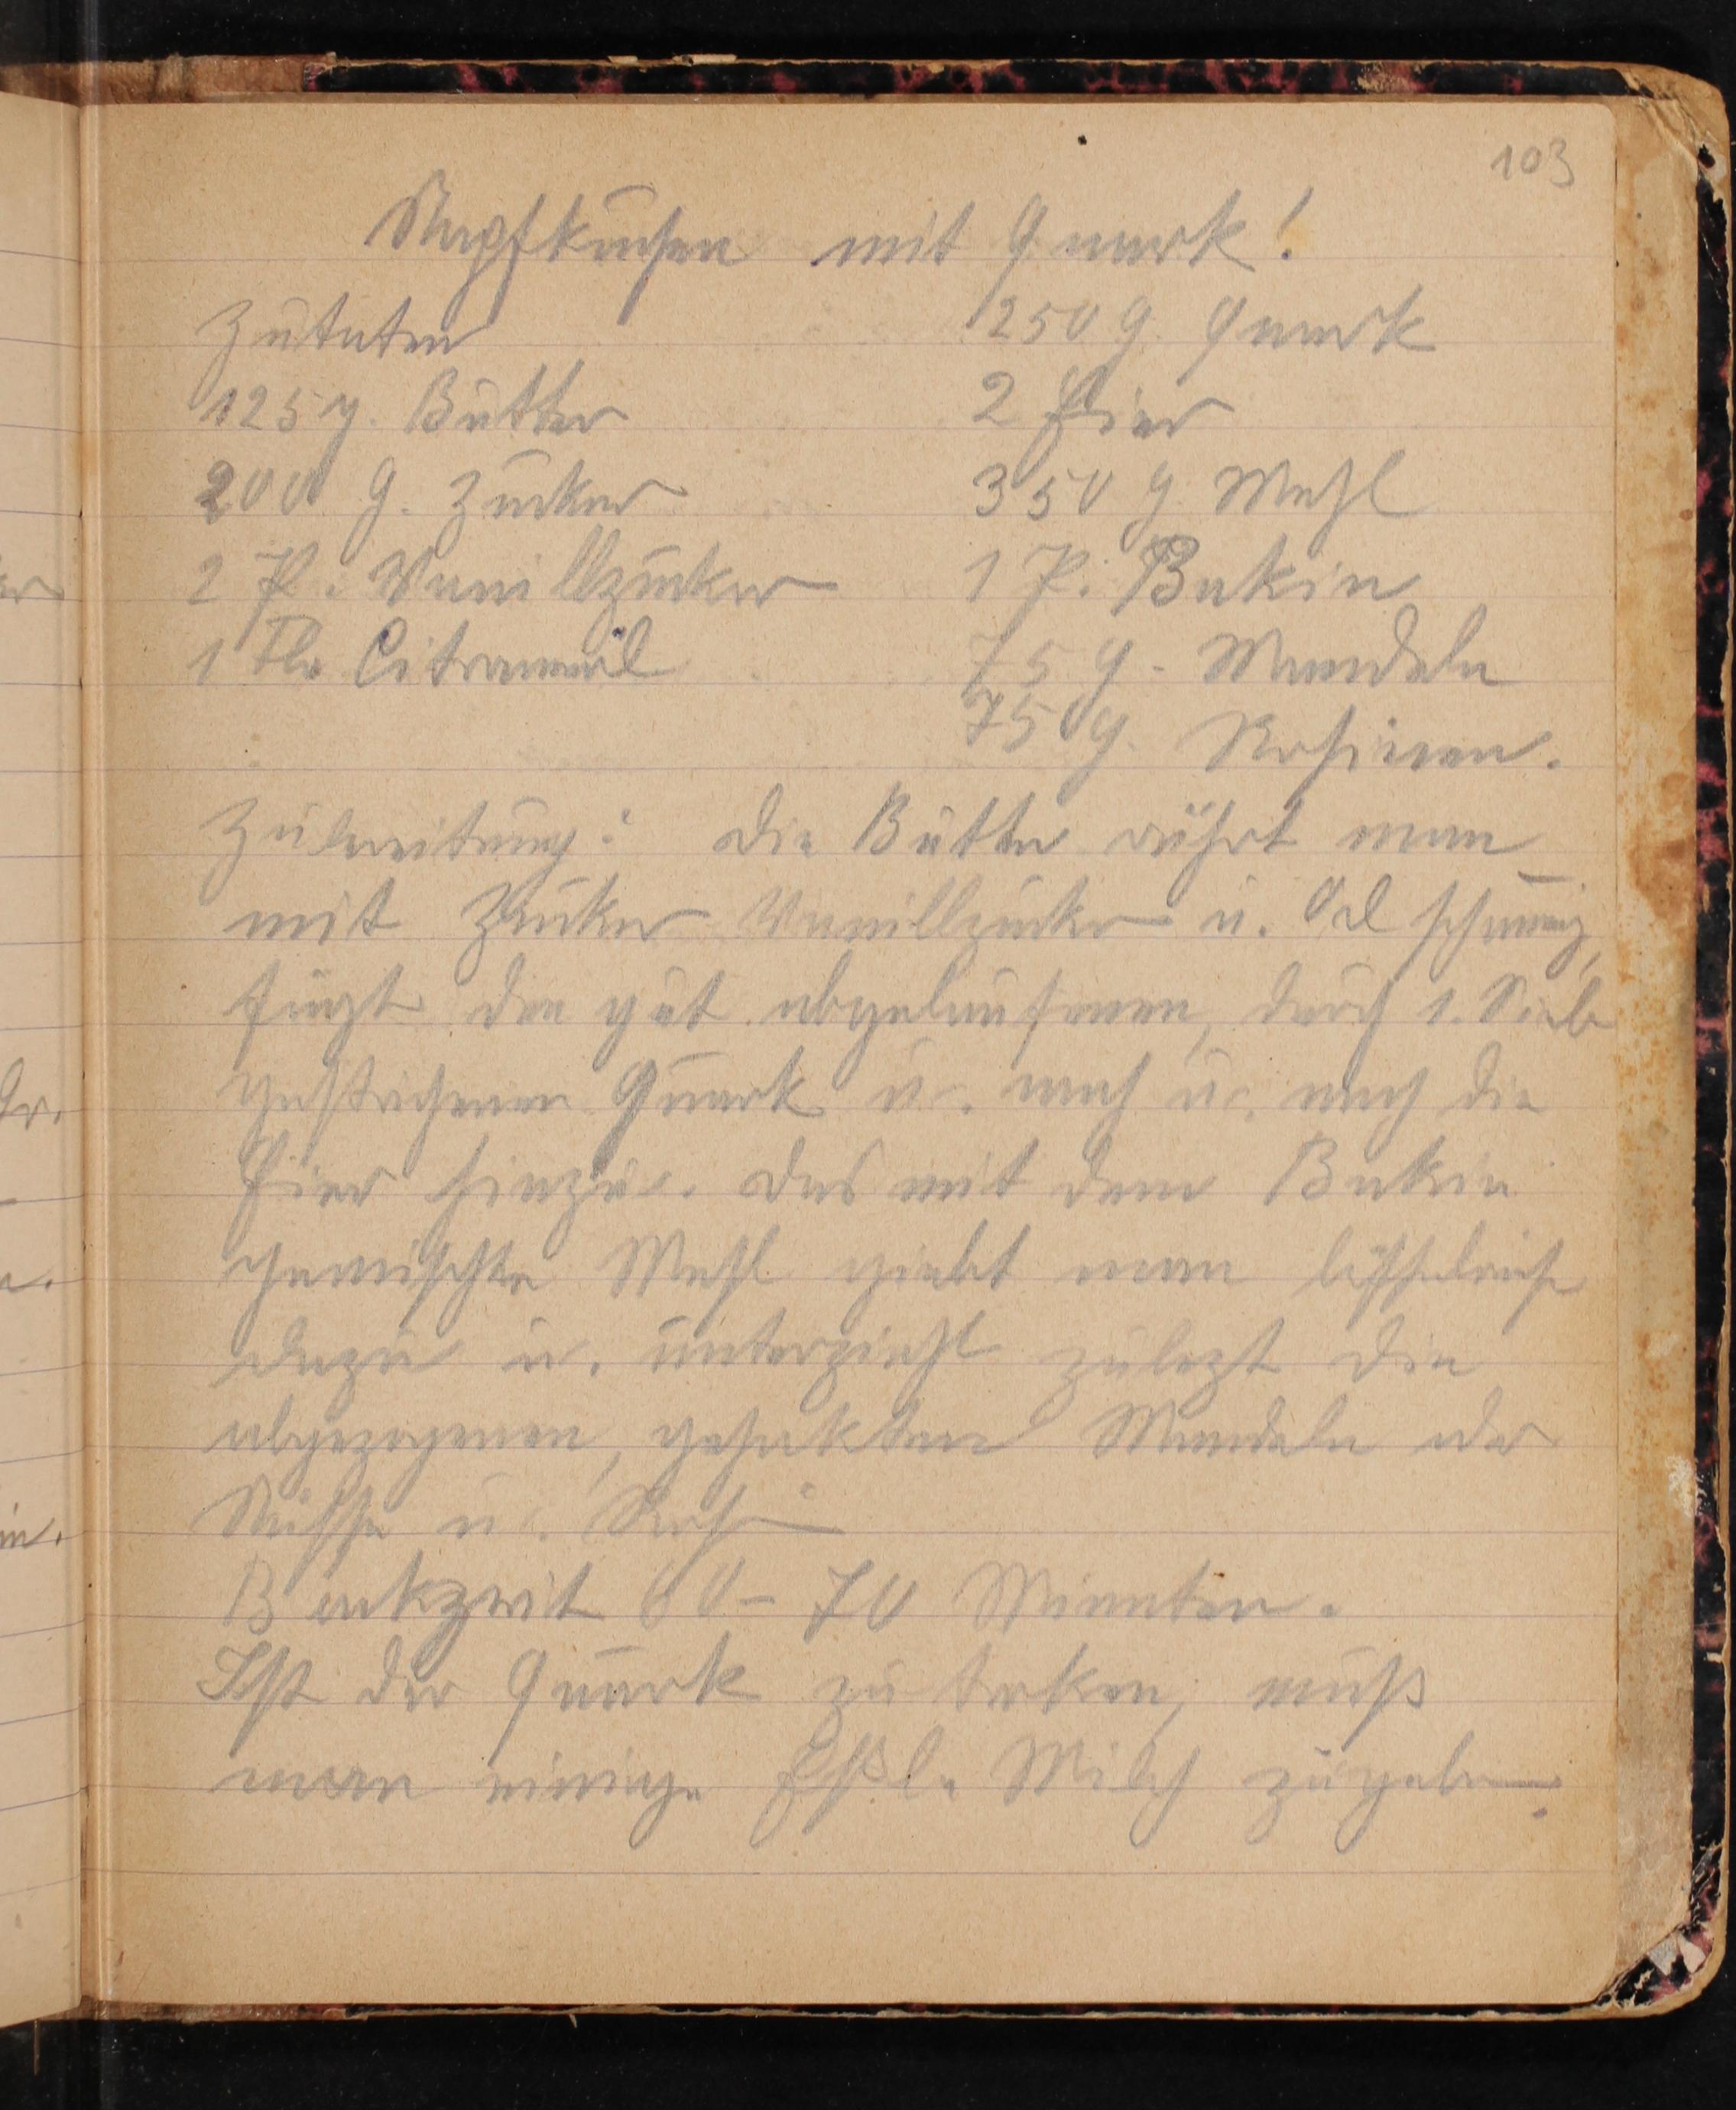 103
Napfkuchen mit Quark!
Zutaten 250 g. Quark
125 g. Butter 2 Eier
200 g. Zucker 350 g Mehl
2 P. Vanillzucker 1 P. Bakin
1 Fl. Citronenöl 75 g. Mandeln
75 g. Rosinen.
Zubereitung: die Butter rührt man
mit Zucker Vanillzucker u. Oel schaumig,
fügt den gut abgelaufenen, durch 1. Sieb
gestrichenen Quark u. nach u. nach die
Eier hinzu. das mit dem Bakin
gemischte Mehl giebt man löffelweise
dazu u. unterzieht zulezt die
abgezogenen, gehakten Mandeln oder
Nüsse u. Rosi
Backzeit 60 - 70 Minuten.
Ist der Quark zu troken, muß
man einige Eßl. Milch zugeben.
er
Gr.
in.